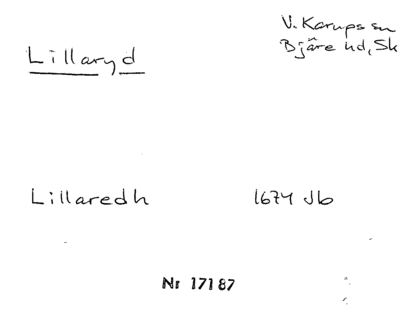 V. Karups sn
Lillaryd
Bjäre hd, Sk
Lillaredh 1674 Jb
Nr 17187